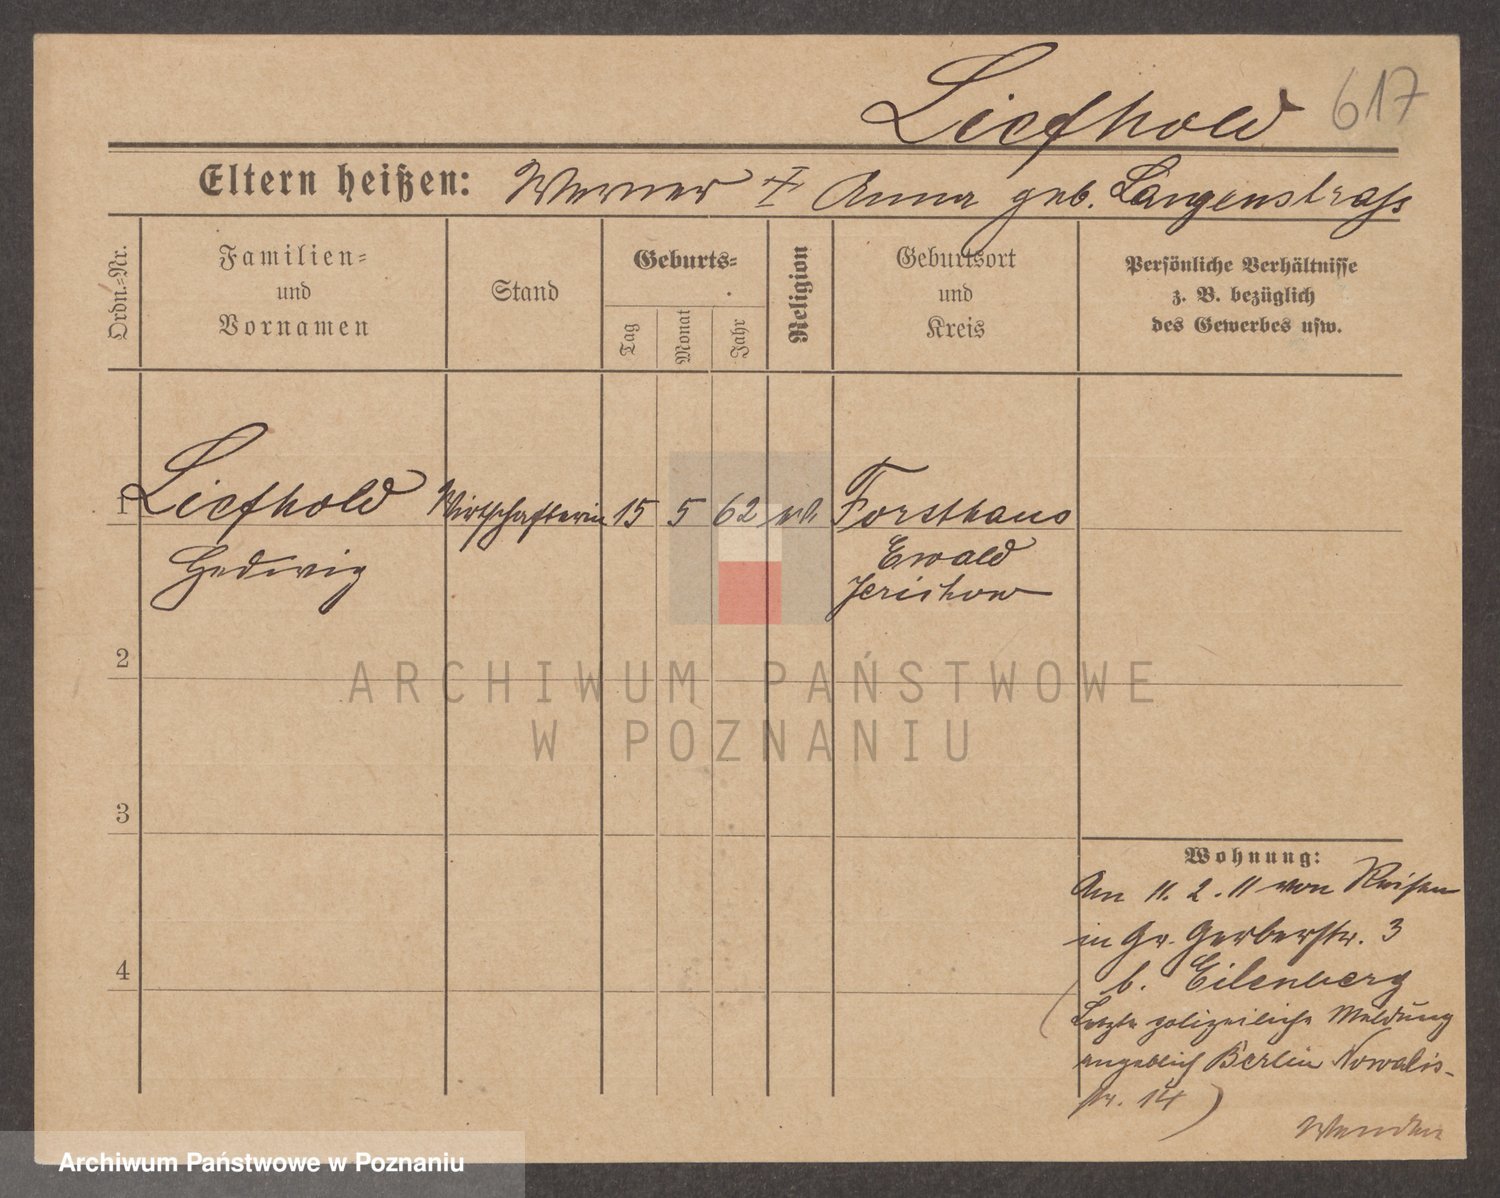 Liefhold 617
Eltern heißen: Werner u. Anna geb. Langenstrass
Ordn.-Nr.
Familien-
und
Vornamen
Stand
Geburts-
Tag
Monat
Jahr
Religion
Geburtsort
und
Kreis
Persönliche Verhältnisse
z. B. bezüglich
des Gewerbes usw.
1 Liefhold Wirtschafterin 15 5 62 ev. Forsthaus
Hedwig Ewald
Jerichow
2
3
4
ARCHIWUM PAŃSTWOWE
W POZNANIU
Wohnung:
Am 11. 2. 11 von Reisen
in Gr. Gerberstr. 3
b. Eilenberg
(Letzte polizeiliche Meldung
angeblich Berlin Nowalis-
str. 14)
Wenden
Archiwum Państwowe w Poznaniu